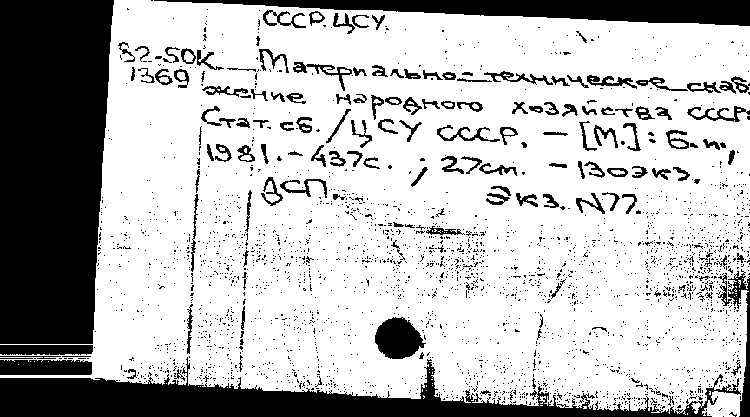 СССР. ЦСУ.
82-50К Материально-техническое снаб
1369 жение народного хозяйства СССР:
Стат. сб. / ЦСУ СССР. – [М.]: Б.и.,
1981. – 437с. ; 27см. – 130экз.
ДСП. Экз. N77.